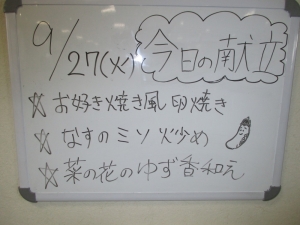 9/27(火) 今日の献立
☆ お好き焼き風 卵焼き
☆ なすのミソ炒め
☆ 菜の花のゆず香和え